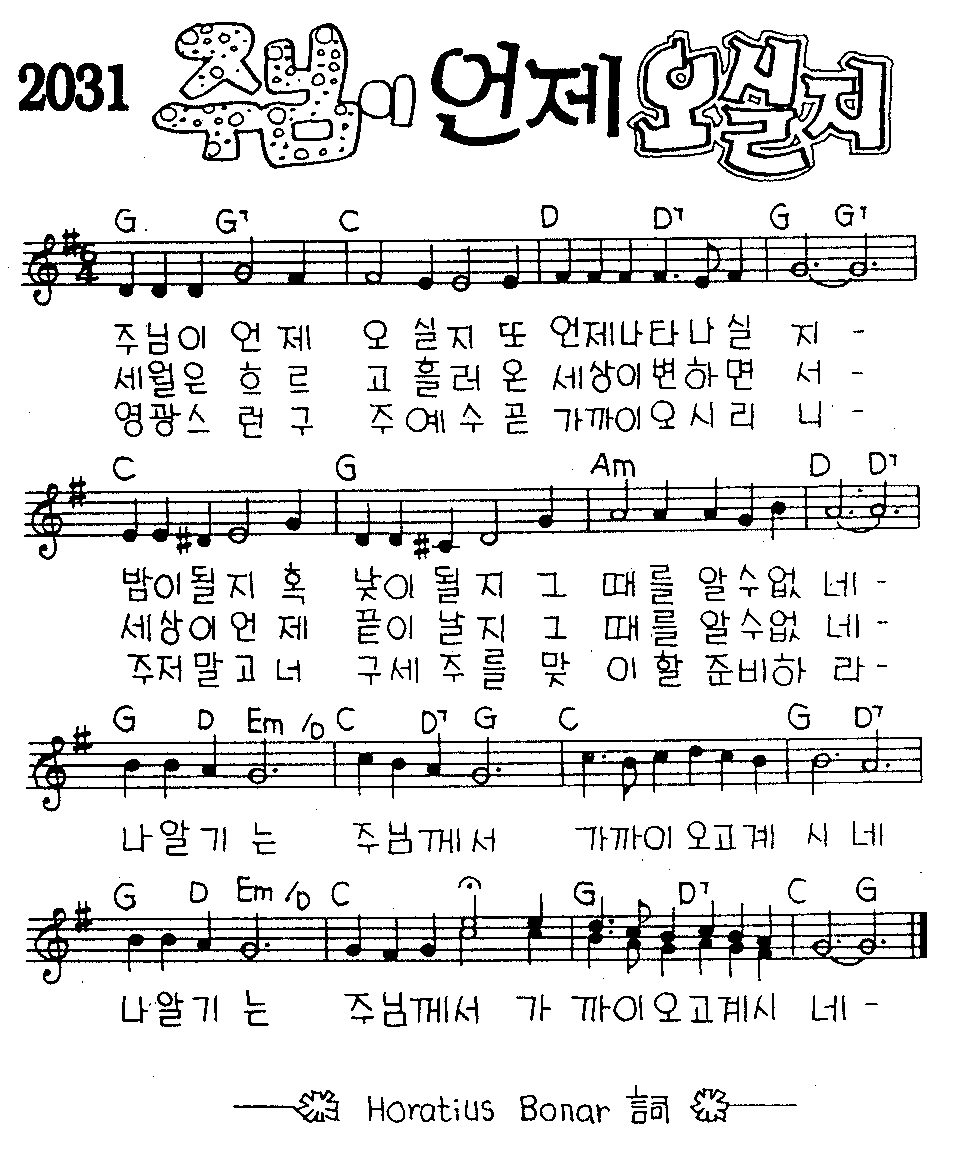 2031 주님이 언제 오실지
G G7 C D D7 G G7
6/4
주님이 언 제 오 실지 또 언제나타나 실 지 -
세월은 흐 르 고 흘러 온 세상이변하면 서 -
영광스 런 구 주 예수 곧 가까이오시리 니 -
C G Am D D7
밤이될지 혹 낮이 될지 그 때를 알수없 네 -
세상이언 제 끝이 날지 그 때를 알수없 네 -
주저말고 너 구세 주를 맞 이할 준비하 라 -
G D Em /D C D7 G C G D7
나알기 는 주님께서 가까이오고계 시 네
G D Em /D C G D7 C G
나알기 는 주님께서 가 까이오고계시 네 -
Horatius Bonar 詞